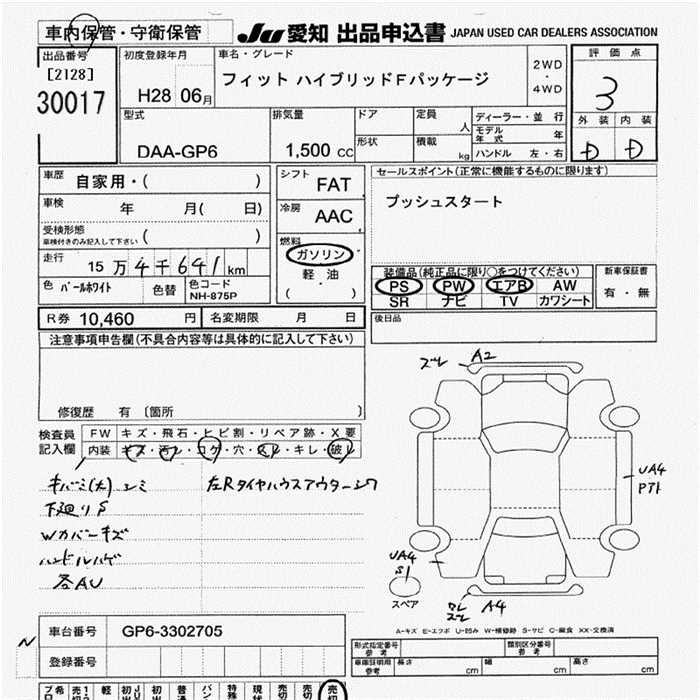 車内保管・守衛保管
JU 愛知 出品申込書 JAPAN USED CAR DEALERS ASSOCIATION
出品番号
[2128]
30017
初度登録年月
H28 06月
車名・グレード
フィット ハイブリッドFパッケージ
2WD
・
4WD
評価点
3
外装 内装
D D
型式
DAA-GP6
排気量
1,500 cc
ドア
形状
定員 人
積載 kg
ディーラー・並行
モデル年式 年
ハンドル 左・右
車歴 自家用・( )
車検 年 月( 日)
受検形態
車検付きのみ記入して下さい ( )
走行 15万4千641km
色 パールホワイト 色替 色コード NH-875P
シフト FAT
冷房 AAC
燃料
ガソリン
軽・油
( )
セールスポイント(正常に機能するものに限ります)
プッシュスタート
装備品(純正品に限り○をつけてください)
PS PW エアB AW
SR ナビ TV カワシート
新車保証書
有・無
R券 10,460 円 名変期限 月 日
後日品
注意事項申告欄(不具合内容等は具体的に記入して下さい)
修復歴 有〔箇所 〕
検査員
記入欄
FW キズ・飛石・ヒビ割・リペア跡・X要
内装 キズ・汚レ・コゲ・穴・スレ・キレ・破レ
キバミ(大) シミ
下廻りS
Wカバーキズ
ハンドルハゲ
各AU
左Rタイヤハウスアウターシワ
ズレ A2
UA4
UA4
S1
スペア
ワレ
ズレ A4
A-キズ E-エクボ U-凹み W-補修跡 S-サビ C-腐食 XX-交換済
N
車台番号 GP6-3302705
登録番号
形式指定番号
参考
類別区分番号
参考
車庫証明用
参考
長さ cm 幅 cm 高さ cm